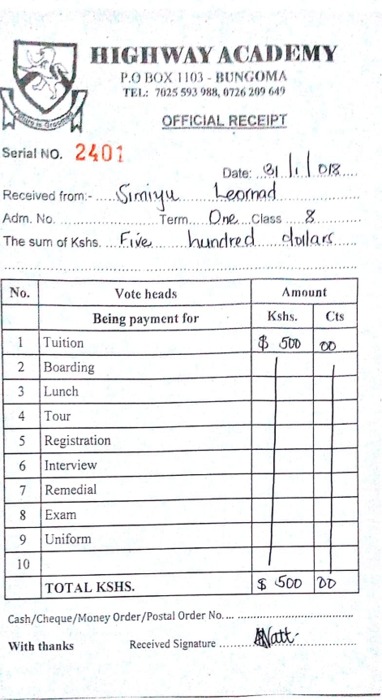 HIGHWAY ACADEMY
P.O BOX 1103 - BUNGOMA
TEL: 7025 593 988, 0726 209 649
OFFICIAL RECEIPT
Serial NO. 2401
Date: 31/1/018
Received from:- Simiyu Leornad
Adm. No. Term. One Class 8
The sum of Kshs. Five hundred dollars
No. Vote heads Amount
Being payment for Kshs. Cts
1 Tuition $ 500 00
2 Boarding
3 Lunch
4 Tour
5 Registration
6 Interview
7 Remedial
8 Exam
9 Uniform
10
TOTAL KSHS. $ 500 00
Cash/Cheque/Money Order/Postal Order No.
With thanks Received Signature